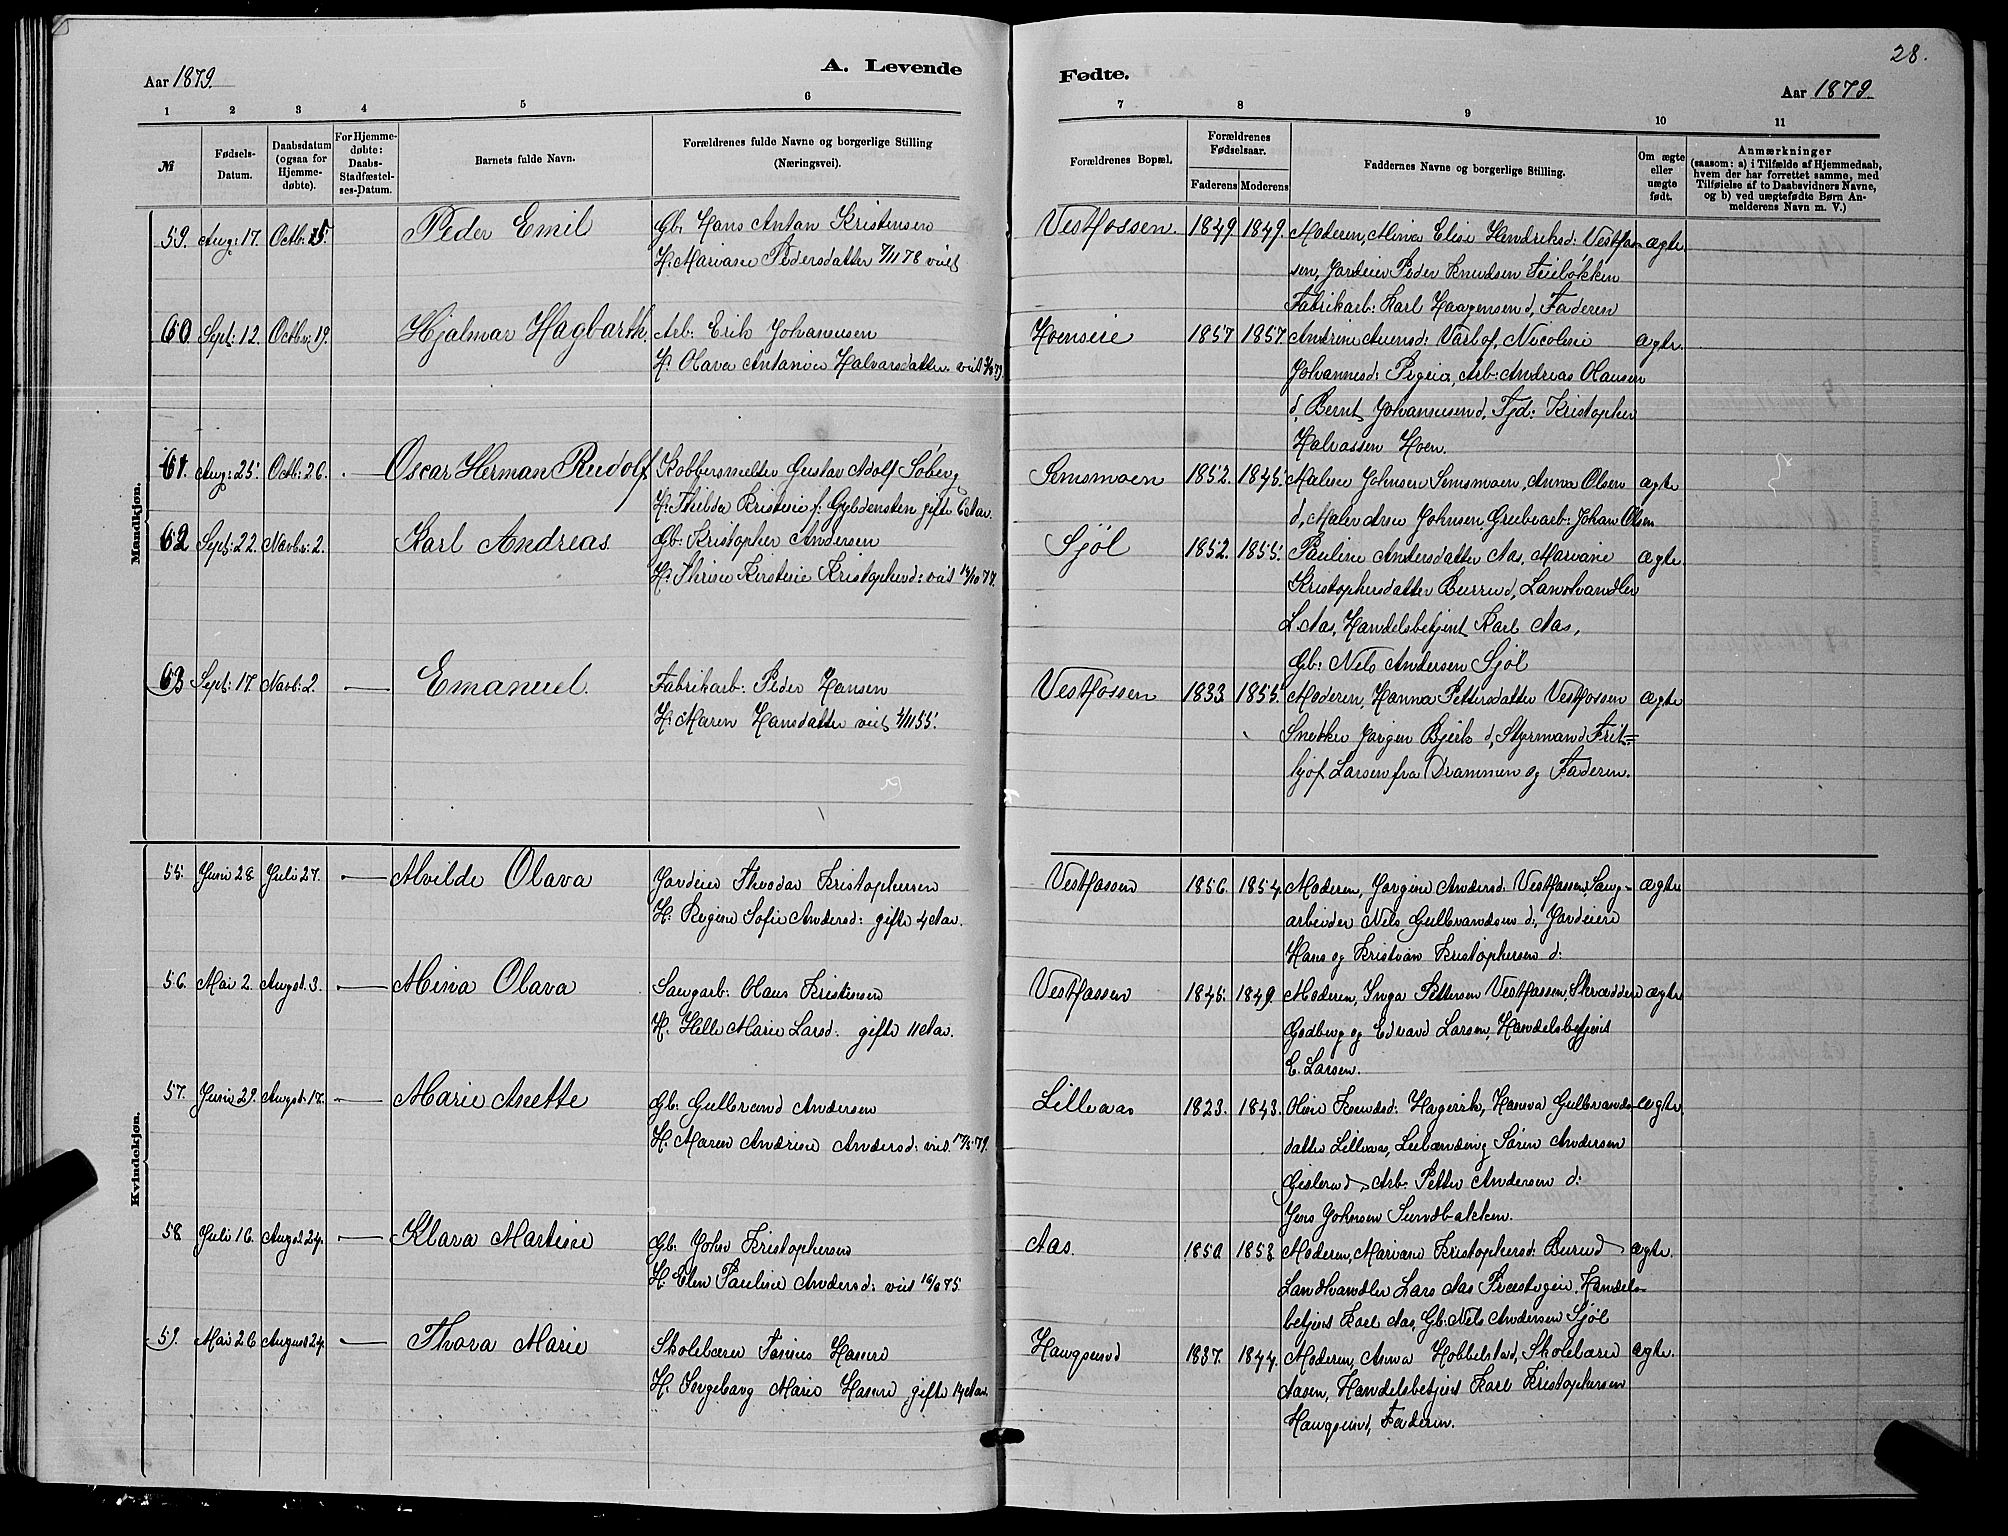 28.
Aar 1879.
A. Levende
Fødte.
Aar 1879.
1 2 3 4 5 6 7 8 9 10 11
№
Fødsels-
Datum.
Daabsdatum
(ogsaa for
Hjemme-
døbte).
For Hjemme-
døbte:
Daabs-
Stadfæstel-
ses-Datum.
Barnets fulde Navn.
Forældrenes fulde Navne og borgerlige Stilling
(Næringsvei).
Forældrenes Bopæl.
Forældrenes
Fødselsaar.
Faderens Moderens
Faddernes Navne og borgerlige Stilling.
Om ægte
eller
uægte
født.
Anmærkninger
(saasom: a) i Tilfælde af Hjemmedaab,
hvem der har forrettet samme, med
Tilføielse af to Daabsvidners Navne,
og b) ved uægtefødte Børn An-
melderens Navn m. V.)
Mandkjøn.
59. Aug: 17. Octb: 5. Peder Emil Gb: Hans Anton Kristensen Vestfossen. 1849 1849. Moderen, Mina Elise Hendriksd: Vestfos- ægte
H: Mariane Pedersdatter 7/11 78 viet
sen, Jordeier Peder Knudsen Teiebøkken
Fabrikarb: Karl Haagensen d, Faderen
60 Sept: 12. Octbr: 19. Hjalmar Hagbarth. Arb: Erik Johannesen Hoenseie 1857 1857 Andrine Auensd: Varlof, Nicoline ægte.
H: Olava Antonie Halvorsdatter viet
Johannesd: Pigeie, Arb: Andreas Olausen
d, Bernt Johannesen d, Tjd: Kristopher
Halvossen Hoen.
61. Aug: 25. Octb: 26. Oscar Herman Rudolf Kobbersmelter Gustav Adolf Søberg Semsmoen 1852. 1845. Malene Johnsen Semsmoen, Anna Olsen ægte
H: Thilda Kristine f: Gyldensten gifte 6 Aar.
d, Maler Arne Johnsen, Grubearb: Johan Olsen
62 Sept: 22. Novbr: 2. Karl Andreas Gb: Kristopher Andersen Sjøl 1852. 1855. Pauline Andersdatter Aas, Mariane ægte.
H: Thrine Kirstine Kristophersd: viet 14/10 77.
Kristophersdatter Burud, Landhandler
L. Aas, Handelsbetjent Karl Aas,
Gb: Nels Andersen Sjøl
63 Sept: 17 Novb: 2. Emanuel. Fabrikarb: Peder Hansen Vestfossen 1833 1855. Moderen, Hanna Pettersdatter Vestfossen ægte
H: Maren Hansdatter viet 4/11 55.
Snedker Jørgen Bjerk d, Styrmand Frit=
hjof Larsen fra Drammen og Faderen.
Kvindekjøn.
55. Juni 28 Juli 27. Alvilde Olava Jordeier Theodor Kristophersen Vestfossen 1856 1854. Moderen, Jørgine Andersd: Vestfossen, Saug- ægte
H: Regine Sofie Andersd: gifte 4 Aar.
arbeider Nels Gulbrandsen d:, Jordeiere
Hans og Kristian Kristophersen d:
56. Mai 2. Augst. 3. Mina Olava Saugarb: Olaus Kristensen Vestfossen 1845. 1849. Moderen, Inga Pettersen Vestfossen, Skrædder ægte
H: Helle Marie Larsd: gifte 11 Aar.
Godberg og Edvard Larsen, Handelsbetjent
E. Larsen.
57. Juni 29. Augst. 17. Marie Anette Gb: Gulbrand Andersen Lilleaas 1823. 1843. Oline Knudsd: Hagevik, Hanna Gulbrands- ægte.
H: Maren Andrine Andersd: viet 17/5 79.
datter Lilleaas, Leilænding Søren Andersen
Gislerud, Arb: Petter Andersen d:
Jens Johnsen Sundbakken.
58 Juli 16. Augst. 24. Klara Martine Gb: John Kristophersen Aas. 1850 1853 Moderen, Mariane Kristophersd: Burud ægte.
H: Elen Pauline Andersd: viet 16/6 75.
Landhandler Lars Aas Præsteqeie, Handels-
betjent Karl Aas, Gb: Nels Andersen Sjøl
59. Mai 26 August 24. Thora Marie Skolelærer Tønnes Hasund Haugsund 1837. 1844. Moderen, Anna Hobbelstad, Skolelærer ægte.
H: Ingeborg Marie Hasund gifte 14 Aar.
Aasen, Handelsbetjent Karl Kristophersen
Haugsund, Faderen.